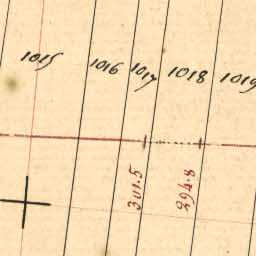 1015
1016
1017
1018
1019
311.5
294.8